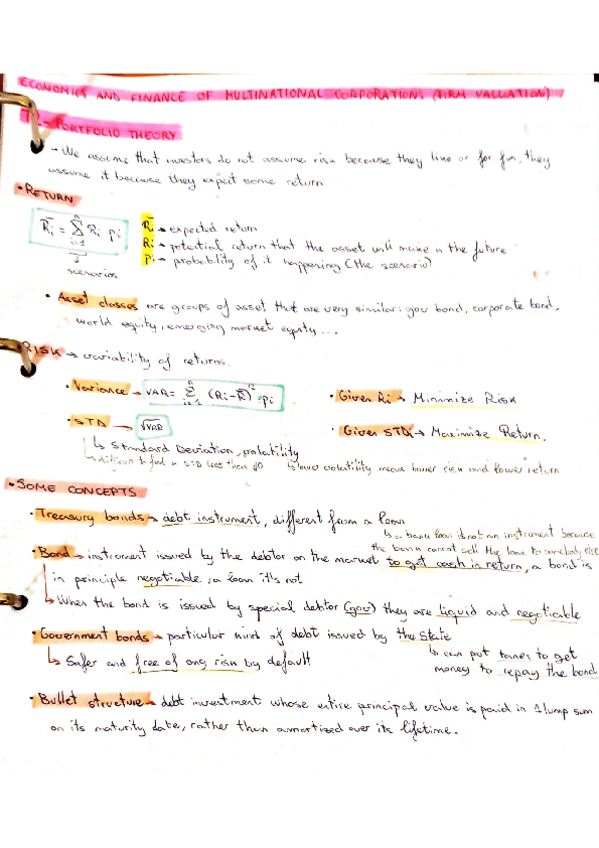 ECONOMICS AND FINANCE OF MULTINATIONAL CORPORATIONS (FIRM VALUATION)
PORTFOLIO THEORY
- We assume that investors do not assume risk because they line or for fun, they
assume it because they expect some return
• RETURN
R̄i = Σ Ri pi
n
i=1
scenarios
R̄i → expected return
Ri → potential return that the asset will make in the future
pi → probability of it happening (the scenario)
• Asset classes are groups of asset that are very similar: gov bond, corporate bond,
world equity, emerging market equity ...
RISK → variability of returns.
• Variance → VAR = Σ (Ri - R̄)² pi
n
i=1
• Given Ri → Minimize Risk
• STD → √VAR
• Given STDi → Maximize Return.
↳ Standard Deviation, volatility
↳ difficult to find a STD less than 0
↳ lower volatility means lower risk and lower return
• SOME CONCEPTS
• Treasury bonds → debt instrument, different from a loan
↳ a bank loan is not an instrument because
the bank cannot sell the loan to somebody else
• Bond → instrument issued by the debtor on the market to get cash in return, a bond is
in principle negotiable, a loan it's not
↳ When the bond is issued by special debtor (gov) they are liquid and negotiable
• Government bonds → particular kind of debt issued by the State
↳ can put taxes to get
money to repay the bond
↳ Safer and free of any risk by default
• Bullet structure → debt investment whose entire principal value is paid in 1 lump sum
on its maturity date, rather than amortized over its lifetime.